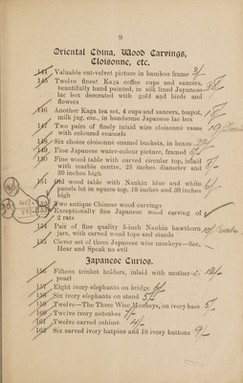 9
Oriental China, Wood Carvings,
Cloisonne, etc.
144 Valuable cut-velvet picture in bamboo frame
145 Twelve finest Kaga coffee cups and saucers,
beautifully hand painted, in silk lined Japanese
lac box decorated with gold and birds and
flowers
146 Another Kaga tea set, 4 cups and saucers, teapot,
milk jug, etc., in handsome Japanese lac box
147 Two pairs of finely inlaid wire cloisonne vases
with coloured enamels
148 Six choice cloisonne enamel buckets, in boxes
149 Fine Japanese water-colour picture, framed
150 Fine wood table with carved circular top, inlaid
with marble centre, 23 inches diameter and
30 inches high
151 Old wood table with Nankin blue and white
panels let in square top, 18 inches and 30 inches
high
152 Two antique Chinese wood carvings
153 Exceptionally fine Japanese wood carving of
2 rats
154 Pair of fine quality 5-inch Nankin hawthorn
jars, with carved wood tops and stands
155 Clever set of three Japanese wise monkeys—See,
Hear and Speak no evil
Japanese Curios.
156 Fifteen trinket holders, inlaid with mother-o'-
pearl
157 Eight ivory elephants on bridge
158 Six ivory elephants on stand 5/-
159 Twelve—The Three Wise Monkeys, on ivory base 5/-
160 Twelve ivory netsukes
161 Twelve carved oshime 4/-
162 Six carved ivory hatpins and 18 ivory buttons 9/-